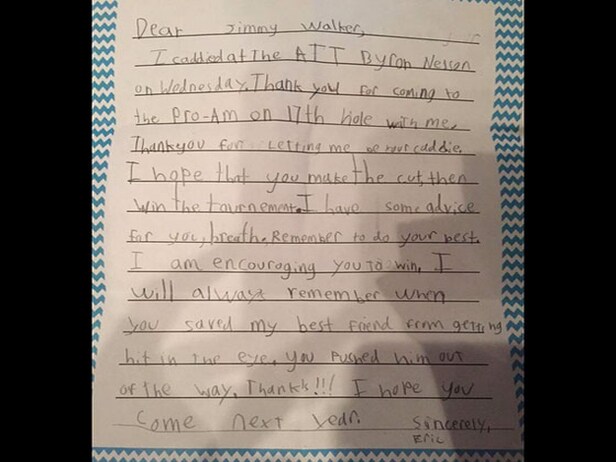 Dear Jimmy Walker,
I caddied at The ATT Byron Nelson
on Wednesday. Thank you for coming to
the Pro-Am on 17th hole with me.
Thankyou for Letting me be your caddie.
I hope that you make the cut, then
win the tournement. I have some advice
for you, breath. Remember to do your best.
I am encouraging you to win. I
will always remember when
you saved my best friend from getting
hit in the eye. You Pushed him out
of the way. Thankk!!! I hope you
Come next year. Sincerely,
Eric